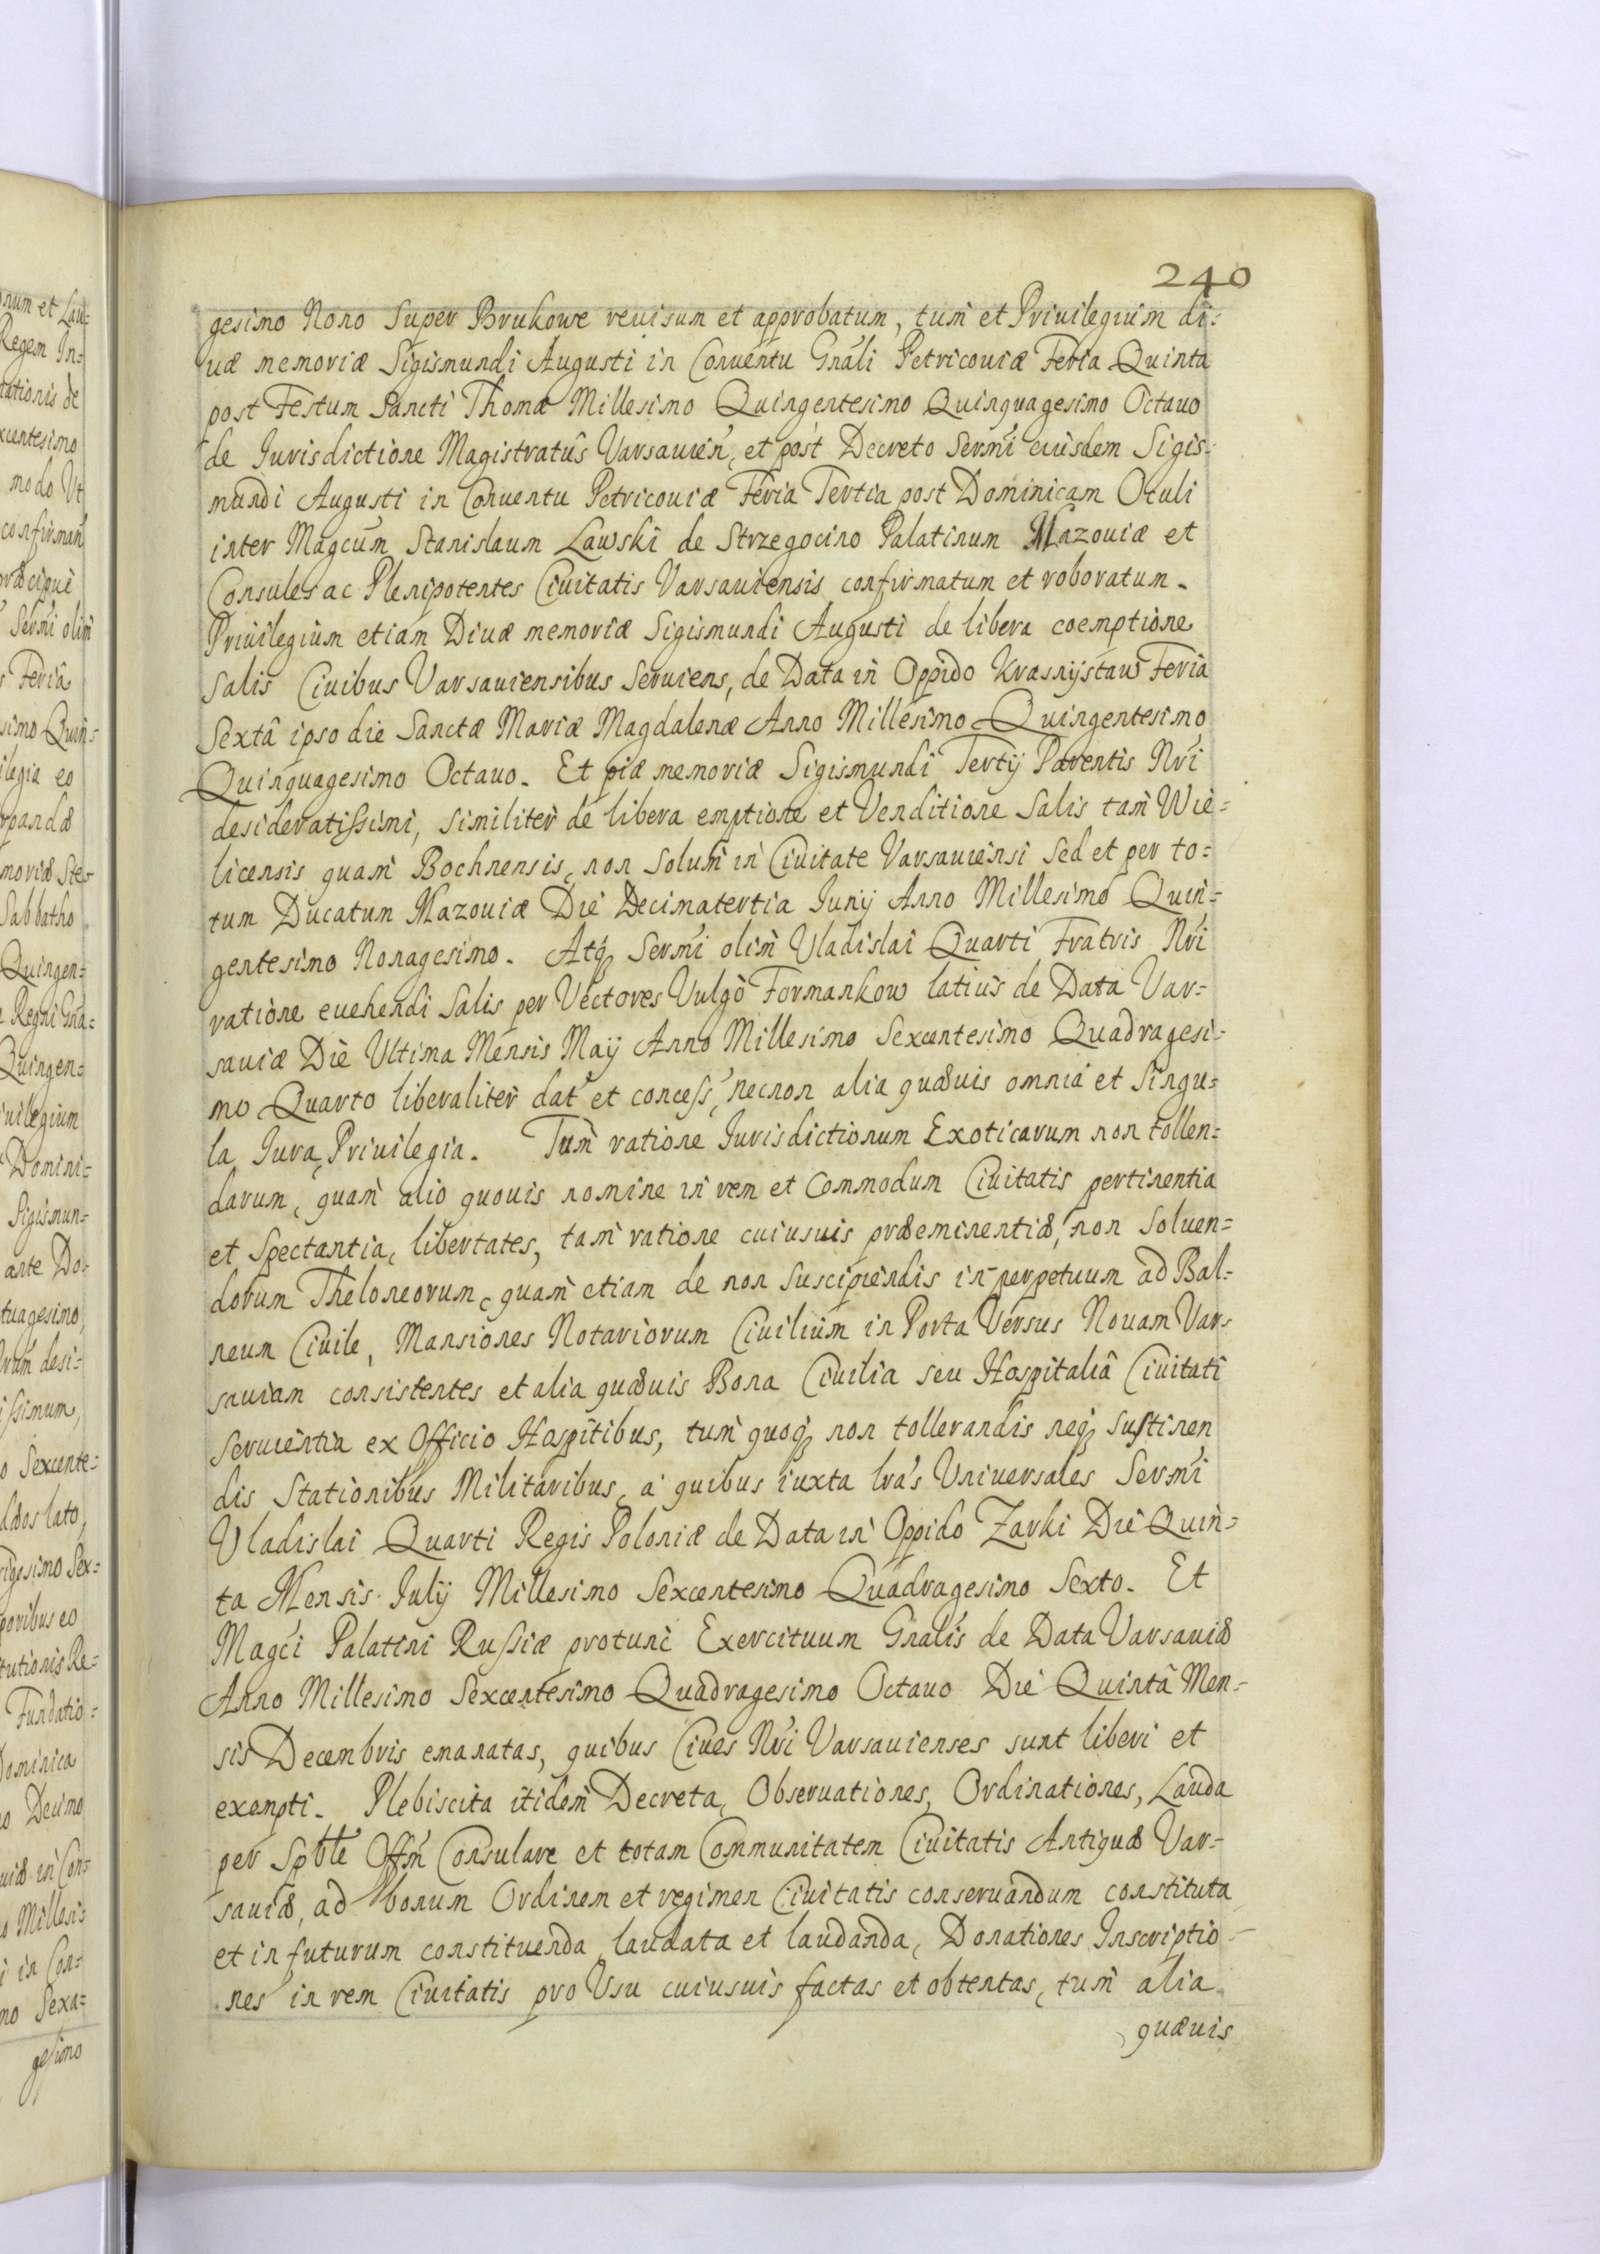 240
gesimo Nono Super Brukowe reuisum et approbatum, tum et Priuilegium di-
uæ memoriæ Sigismundi Augusti in Conuentu Gnáli Petricouiæ Feria Quinta
post Festum Sancti Thomæ Millesimo Quingentesimo Quinquagesimo Octauo
de Iurisdictione Magistratûs Varsauień, et post Decreto Sermi eiusdem Sigis-
mundi Augusti in Conuentu Petricouiæ Feria Tertia post Dominicam Oculi
inter Magcum Stanislaum Lawski de Strzegocino Palatinum Mazouiæ et
Consules ac Plenipotentes Ciuitatis Varsauiensis confirmatum et roboratum.
Priuilegium etiam Diuæ memoriæ Sigismundi Augusti de libera coemptione
Salis Ciuibus Varsauiensibus Seruiens, de Data in Oppido Krasnijstaw Feria
Sextâ ipso die Sanctæ Mariæ Magdalenæ Anno Millesimo Quingentesimo
Quinquagesimo Octauo. Et piæ memoriæ Sigismundi Tertij Parentis Nri
desideratissimi, similiter de libera emptione et Venditione Salis tam Wie-
licensis quam Bochnensis, non solum in Ciuitate Varsauiensi Sed et per to-
tum Ducatum Mazouiæ Die Decimatertia Iunij Anno Millesimo Quin-
gentesimo Nonagesimo. Atq3 Sermi olim Vladislai Quarti Fratris Nri
ratione euehendi Salis per Vectores Vulgò Formankow latius de Data Var-
sauiæ Die Ultima Mensis Maij Anno Millesimo Sexcentesimo Quadragesi-
mo Quarto liberaliter dat et concess, necnon alia quæuis omnia et Singu-
la Iura, Priuilegia. Tum ratione Iurisdictionum Exoticarum non tollen-
darum, quam alio quouis nomine in rem et Commodum Ciuitatis pertinentia
et Spectantia, libertates, tam ratione cuiusuis præeminentiæ, non Soluen-
dorum Theloneorum, quam etiam de non Suscipiendis in perpetuum ad Bal-
neum Ciuile, Mansiones Notariorum Ciuilium in Porta Versus Nouam Var-
sauiam consistentes et alia quæuis Bona Ciuilia seu Hospitaliâ Ciuitati
Seruientia ex Officio Hospitibus, tum quoq3 non tollerandis neq3 sustinen
dis Stationibus Militaribus, a quibus iuxta lras Universales Sermi
Vladislai Quarti Regis Poloniæ de Data in Oppido Zarki Die Quin-
ta Mensis Iulij Millesimo Sexcentesimo Quadragesimo Sexto. Et
Magci Palatini Russiæ protunc Exercituum Gnalis de Data Varsauiæ
Anno Millesimo Sexcentesimo Quadragesimo Octauo Die Quintâ Men-
sis Decembris emanatas, quibus Ciues Nri Varsauienses sunt liberi et
exempti. Plebiscita itidem Decreta, Observationes, Ordinationes, Lauda
per Spble Offm Consulare et totam Communitatem Ciuitatis Antiquæ Var-
sauiæ, ad bonum Ordinem et regimen Ciuitatis conseruandum constituta
et in futurum constituenda, laudata et laudanda, Donationes Inscriptio-
nes in rem Ciuitatis pro Usu cuiusuis factas et obtentas, tum alia
quæuis